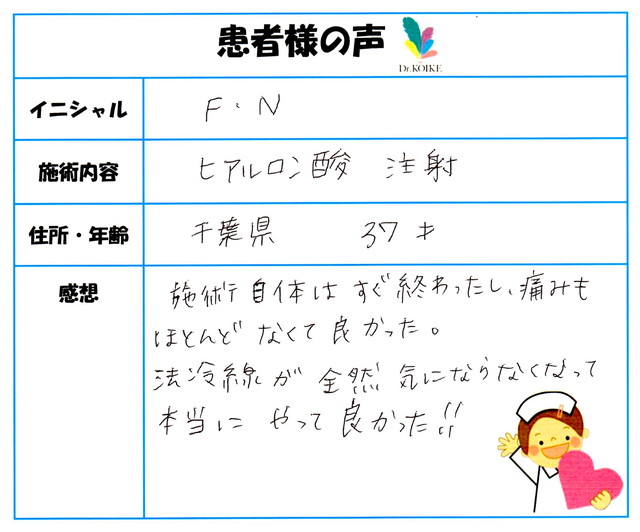 患者様の声
Dr.KOIKE
イニシャル
F・N
施術内容
ヒアルロン酸 注射
住所・年齢
千葉県 37才
感想
施術自体はすぐ終わったし、痛みも
ほとんどなくて良かった。
法冷線が全然気にならなくなって
本当にやって良かった!!